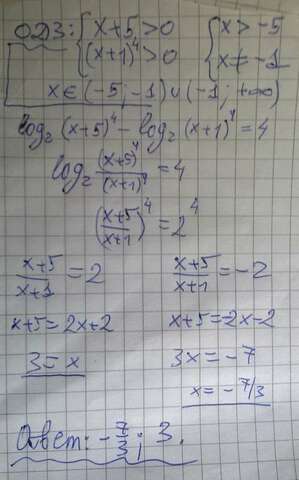 ОДЗ: { x+5 > 0 { x > -5
(x+1)⁴ > 0 x ≠ -1
x ∈ (-5; -1) ∪ (-1; +∞)
log₂ (x+5)⁴ - log₂ (x+1)⁴ = 4
log₂ (x+5)⁴/(x+1)⁴ = 4
((x+5)/(x+1))⁴ = 2⁴
(x+5)/(x+1) = 2 (x+5)/(x+1) = -2
x+5 = 2x+2 x+5 = -2x-2
3 = x 3x = -7
x = -7/3
Ответ: -7/3; 3.